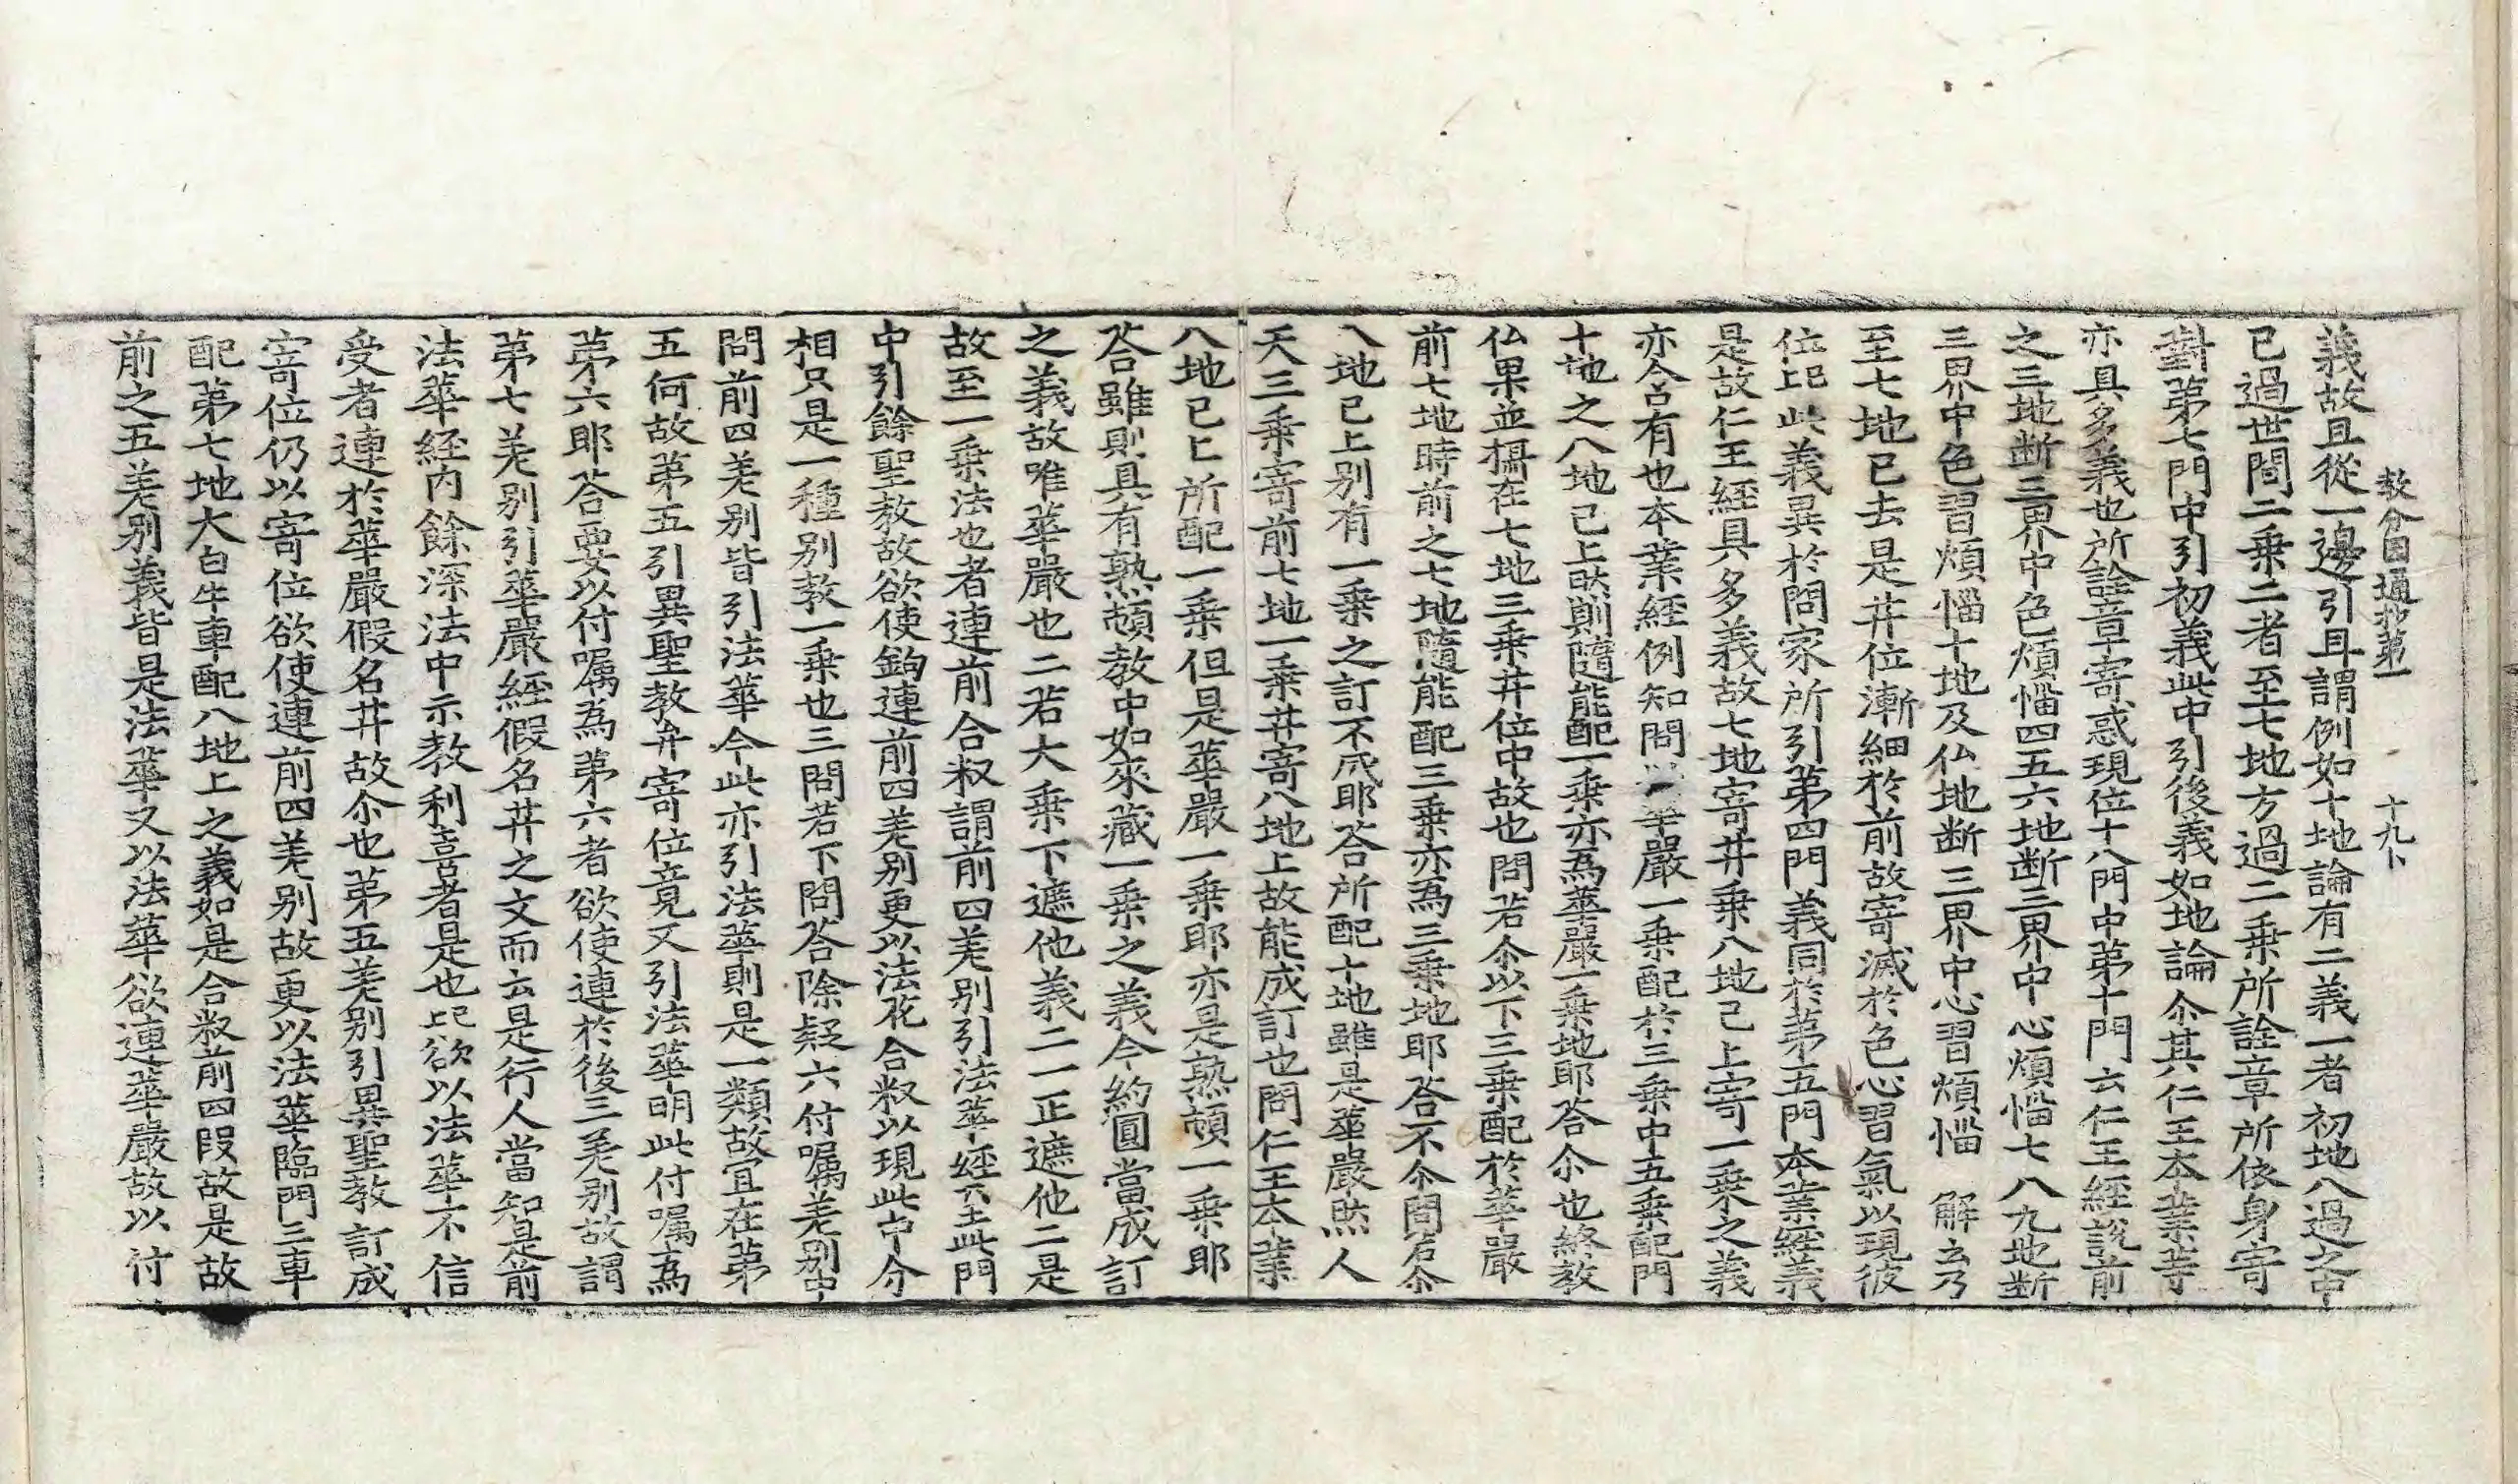 教分囙通抄第一　十九卜
義故且從一邊引且謂例如十地論有二義一者初地八過之中
已過世間二乗二者至七地方過二乗所詮章所依身寄
對第七門中引初義此中引後義如地論尒其仁王本業等
亦具多義也所詮章寄惑現位十八門中第十門云仁王經說前
之三地断三界中色煩惱四五六地断三界中心煩惱七八九地断
三界中色習煩惱十地及仏地断三界中心習煩惱　解云乃
至七地已去是井位漸細於前故寄滅於色心習氣以現彼
位圯此義異於問家所引第四門義同於第五門本業經義
是故仁王經具多義故七地寄井乗八地已上寄一乗之義
亦合有也本業經例知問華嚴一乗配於三乗中五乗配門
十地之八地已上㷊則隨能配一乗亦為華嚴一乗地耶荅尒也終教
仏果並攝在七地三乗井位中故也問若尒以下三乗配於華嚴
前七地時前之七地隨能配三乗亦為三乗地耶荅不尒問若尒
八地已上别有一乗之訂不成耶荅所配十地雖是華嚴㷊人
天三乗寄前七地一乗井寄八地上故能成訂也問仁王本業
八地已上所配一乗但是華嚴一乗耶亦是熟頓一乗耶
荅雖則具有熟頓教中如來藏一乗之義今約圓當成訂
之義故唯華嚴也二若大乗下遮他義二一正遮他二是
故至一乗法也者連前合糓謂前四羌别引法華經㝎此門
中引餘聖教故欲使鉤連前四羌别更以法花合糓以現此中分
相只是一種别教一乗也三問若下問荅除疑六付嘱羌别中
問前四羌别皆引法華今此亦引法華則是一類故宜在第
五何故第五引異聖教弁寄位竟又引法華明此付嘱為
第六耶荅要以付嘱為第六者欲使連於後三羌别故謂
第七羌别引華嚴經假名井之文而云是行人當知是前
法華經内餘深法中示教利喜者是也圯欲以法華不信
受者連於華嚴假名井故尒也第五羌别引異聖教訂成
寄位仍以寄位欲使連前四羌别故更以法華臨門三車
配第七地大白牛車配八地上之義如是合糓前四段故是故
前之五羌别義皆是法華又以法華欲連華嚴故以付